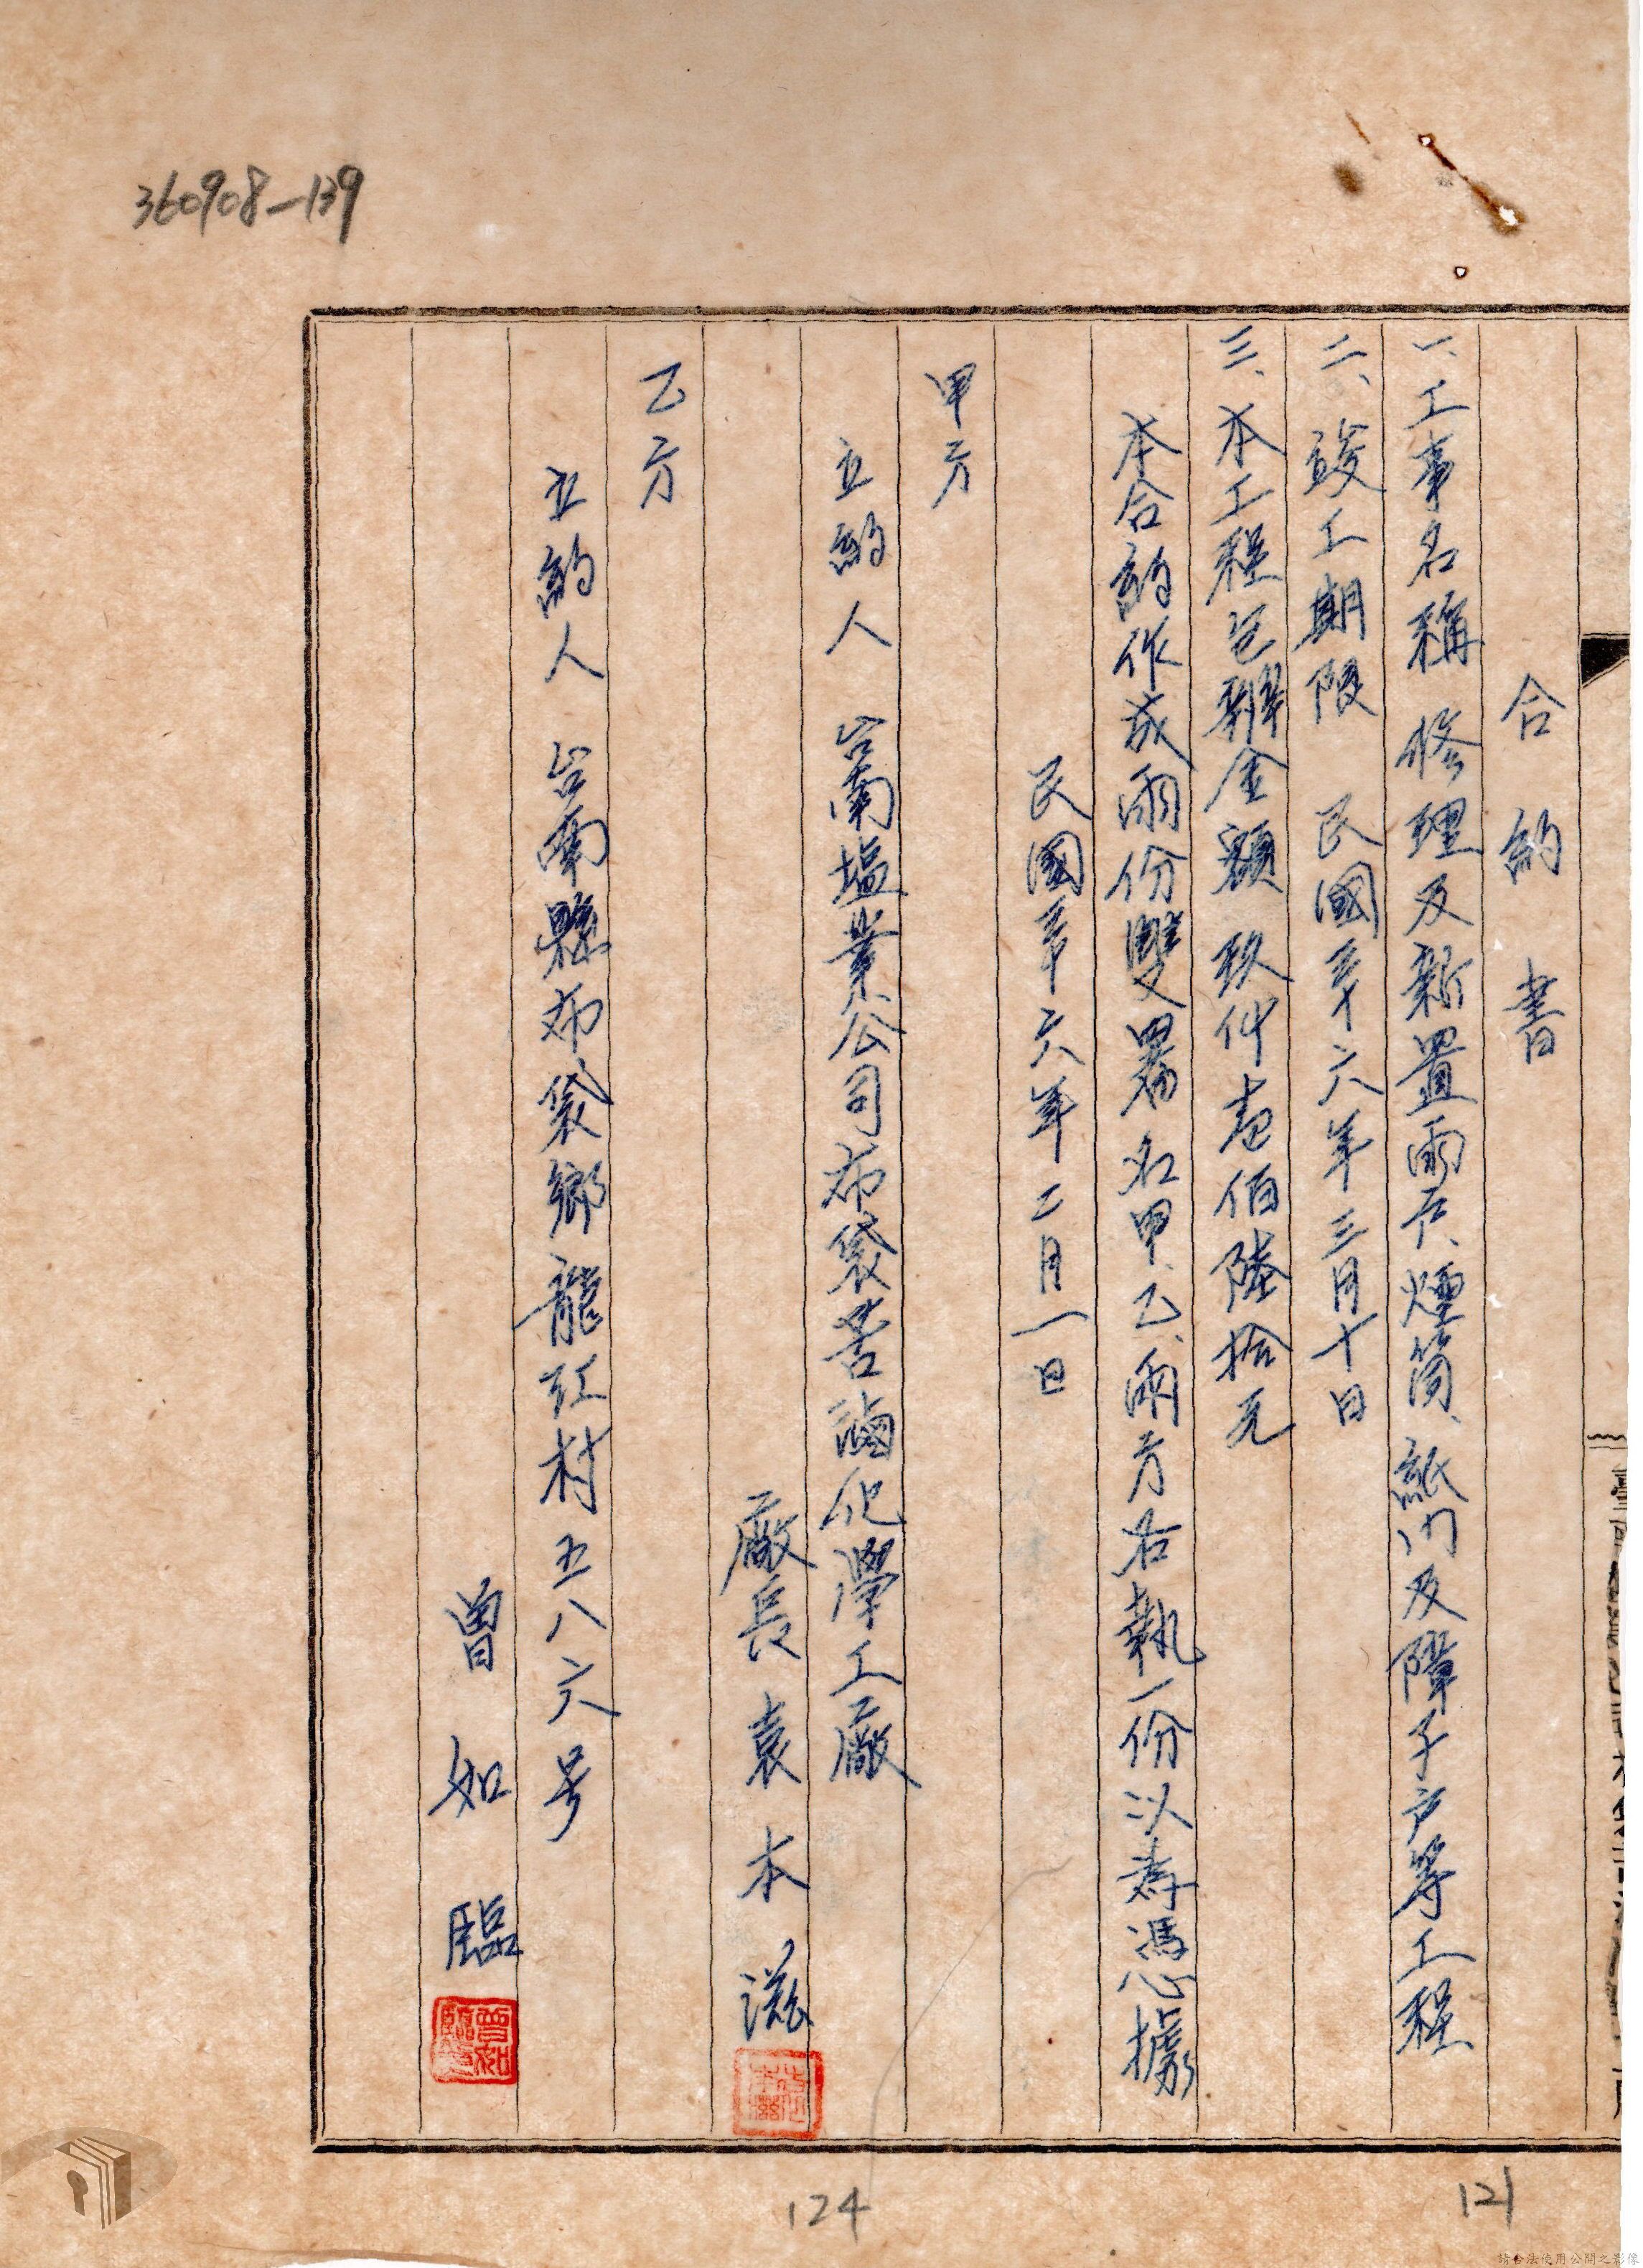 合約書
一、工事名稱 修理及新置雨戶、煙筒、紙門及障子戶等工程
二、竣工期限 民國三十六年三月十日
三、本工程包辦金額 玖仟壹佰陸拾元
本合約作成兩份雙署名甲、乙、兩方各執一份以為憑據
民國三十六年二月一日
甲方
立約人 台南塩業公司布袋苦滷化學工廠
廠長 袁本滋
乙方
立約人 台南縣布袋鄉龍江村五八六号
曾如臨
360908-139
124
121
請合法使用公開之影像